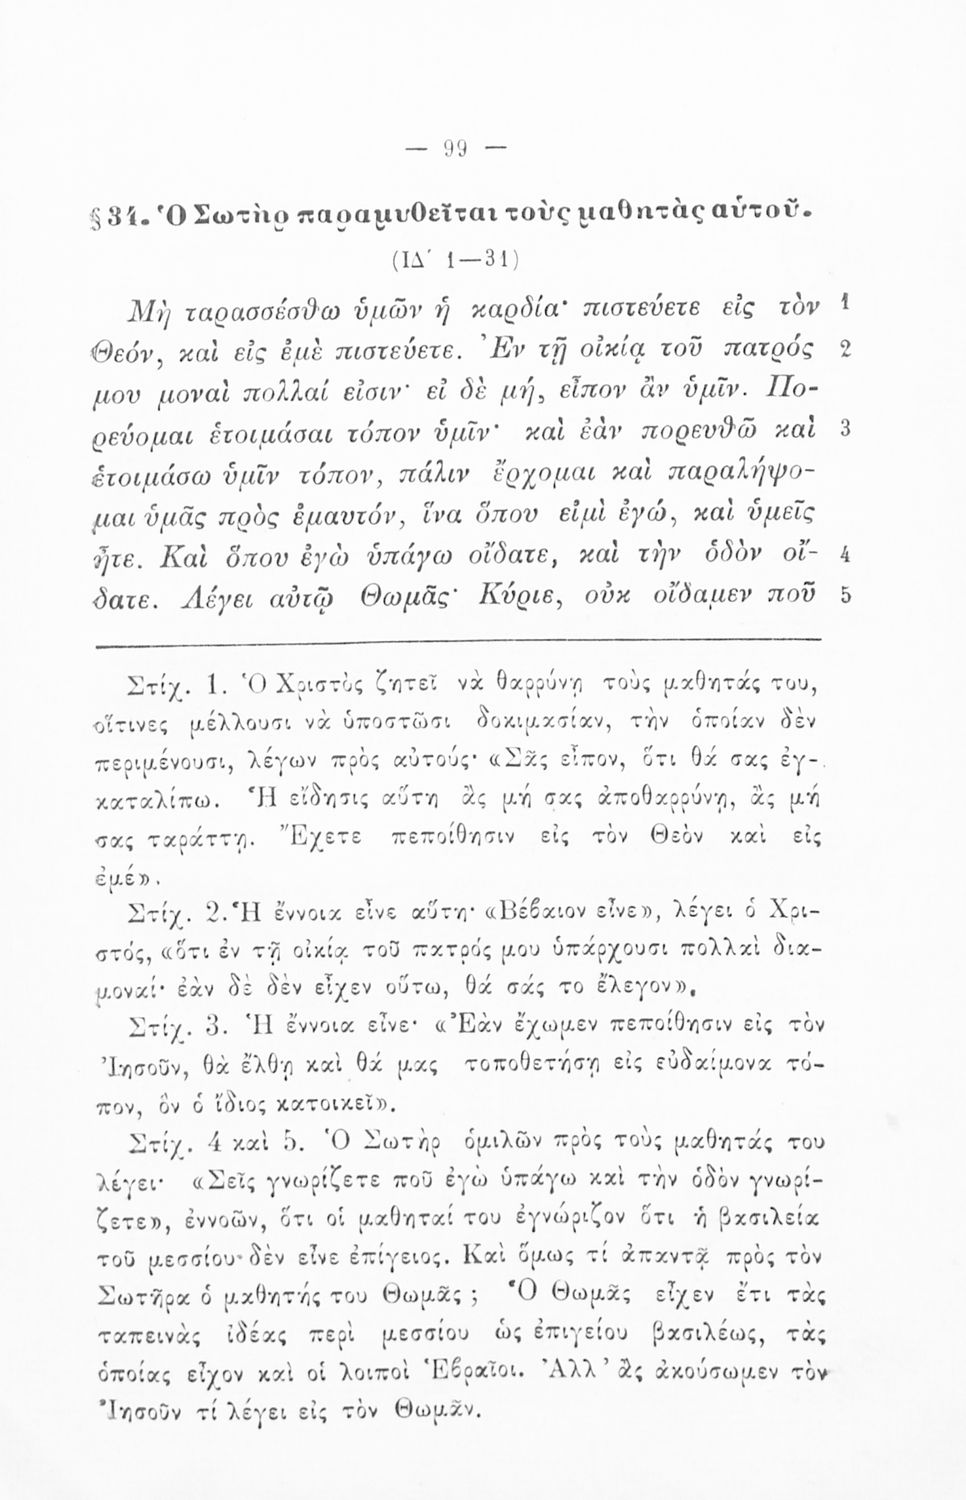 — 99 —
§ 34. Ὁ Σωτὴρ παραμυθεῖται τοὺς μαθητὰς αὑτοῦ.
(ΙΔ΄ 1—31)
Μὴ ταρασσέσθω ὑμῶν ἡ καρδία· πιστεύετε εἰς τὸν 1
Θεόν, καὶ εἰς ἐμὲ πιστεύετε. Ἐν τῇ οἰκίᾳ τοῦ πατρός 2
μου μοναὶ πολλαί εἰσιν· εἰ δὲ μή, εἶπον ἂν ὑμῖν. Πο-
ρεύομαι ἑτοιμάσαι τόπον ὑμῖν· καὶ ἐὰν πορευθῶ καὶ 3
ἑτοιμάσω ὑμῖν τόπον, πάλιν ἔρχομαι καὶ παραλήψο-
μαι ὑμᾶς πρὸς ἐμαυτόν, ἵνα ὅπου εἰμὶ ἐγώ, καὶ ὑμεῖς
ἦτε. Καὶ ὅπου ἐγὼ ὑπάγω οἴδατε, καὶ τὴν ὁδὸν οἴ- 4
δατε. Λέγει αὐτῷ Θωμᾶς· Κύριε, οὐκ οἴδαμεν ποῦ 5
Στίχ. 1. Ὁ Χριστὸς ζητεῖ νὰ θαρρύνῃ τοὺς μαθητάς του,
οἵτινες μέλλουσι νὰ ὑποστῶσι δοκιμασίαν, τὴν ὁποίαν δὲν
περιμένουσι, λέγων πρὸς αὐτούς· «Σᾶς εἶπον, ὅτι θά σας ἐγ-
καταλίπω. Ἡ εἴδησις αὕτη ἂς μή σας ἀποθαρρύνῃ, ἂς μή
σας ταράττῃ. Ἔχετε πεποίθησιν εἰς τὸν Θεὸν καὶ εἰς
ἐμέ».
Στίχ. 2. Ἡ ἔννοια εἶνε αὕτη· «Βέβαιον εἶνε», λέγει ὁ Χρι-
στός, «ὅτι ἐν τῇ οἰκίᾳ τοῦ πατρός μου ὑπάρχουσι πολλαὶ δια-
μοναί· ἐὰν δὲ δὲν εἶχεν οὕτω, θά σάς το ἔλεγον».
Στίχ. 3. Ἡ ἔννοια εἶνε· «Ἐὰν ἔχωμεν πεποίθησιν εἰς τὸν
Ἰησοῦν, θὰ ἔλθῃ καὶ θά μας τοποθετήσῃ εἰς εὐδαίμονα τό-
πον, ὃν ὁ ἴδιος κατοικεῖ».
Στίχ. 4 καὶ 5. Ὁ Σωτὴρ ὁμιλῶν πρὸς τοὺς μαθητάς του
λέγει· «Σεῖς γνωρίζετε ποῦ ἐγὼ ὑπάγω καὶ τὴν ὁδὸν γνωρί-
ζετε», ἐννοῶν, ὅτι οἱ μαθηταί του ἐγνώριζον ὅτι ἡ βασιλεία
τοῦ μεσσίου δὲν εἶνε ἐπίγειος. Καὶ ὅμως τί ἀπαντᾷ πρὸς τὸν
Σωτῆρα ὁ μαθητής του Θωμᾶς ; Ὁ Θωμᾶς εἶχεν ἔτι τὰς
ταπεινὰς ἰδέας περὶ μεσσίου ὡς ἐπιγείου βασιλέως, τὰς
ὁποίας εἶχον καὶ οἱ λοιποὶ Ἑβραῖοι. Ἀλλ’ ἂς ἀκούσωμεν τὸν
Ἰησοῦν τί λέγει εἰς τὸν Θωμᾶν.